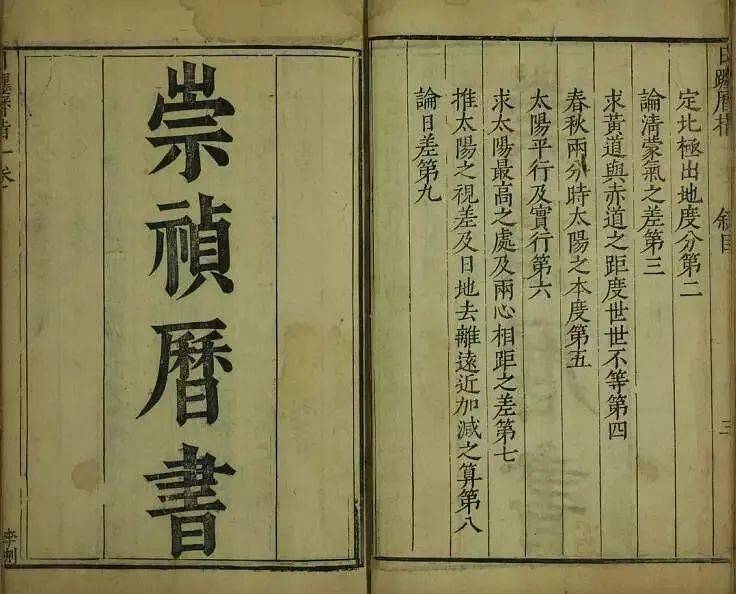 定北極出地度分第二
論清蒙氣之差第三
求黃道與赤道之距度世世不等第四
春秋兩分時太陽之本度第五
太陽平行及實行第六
求太陽最高之處及兩心相距之差第七
推太陽之視差及日地去離遠近加減之算第八
論日差第九
三
崇禎曆書